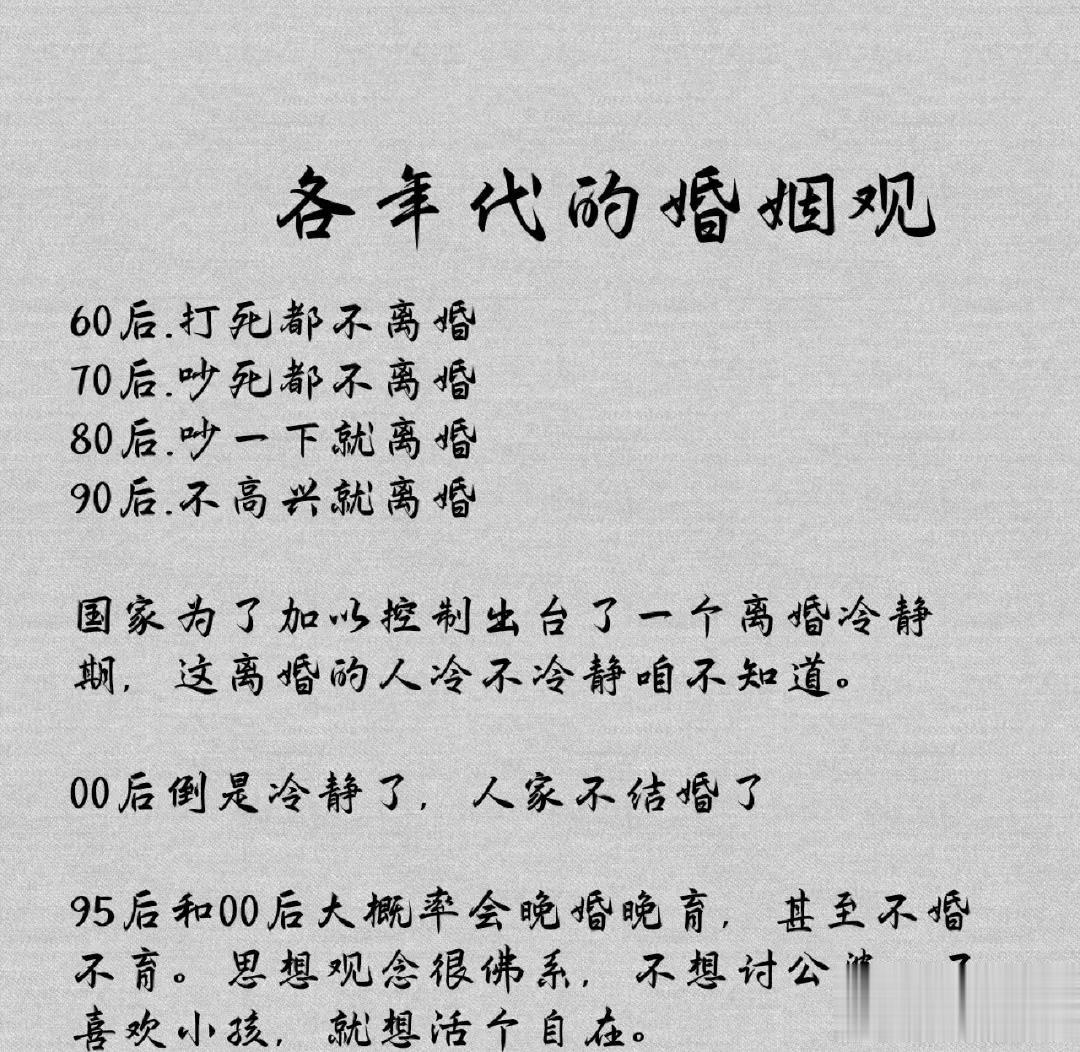 各年代的婚姻观
60后.打死都不离婚
70后.吵死都不离婚
80后.吵一下就离婚
90后.不高兴就离婚
国家为了加以控制出台了一个离婚冷静
期，这离婚的人冷不冷静咱不知道。
00后倒是冷静了，人家不结婚了
95后和00后大概率会晚婚晚育，甚至不婚
不育。思想观念很佛系，不想讨公
喜欢小孩，就想活个自在。